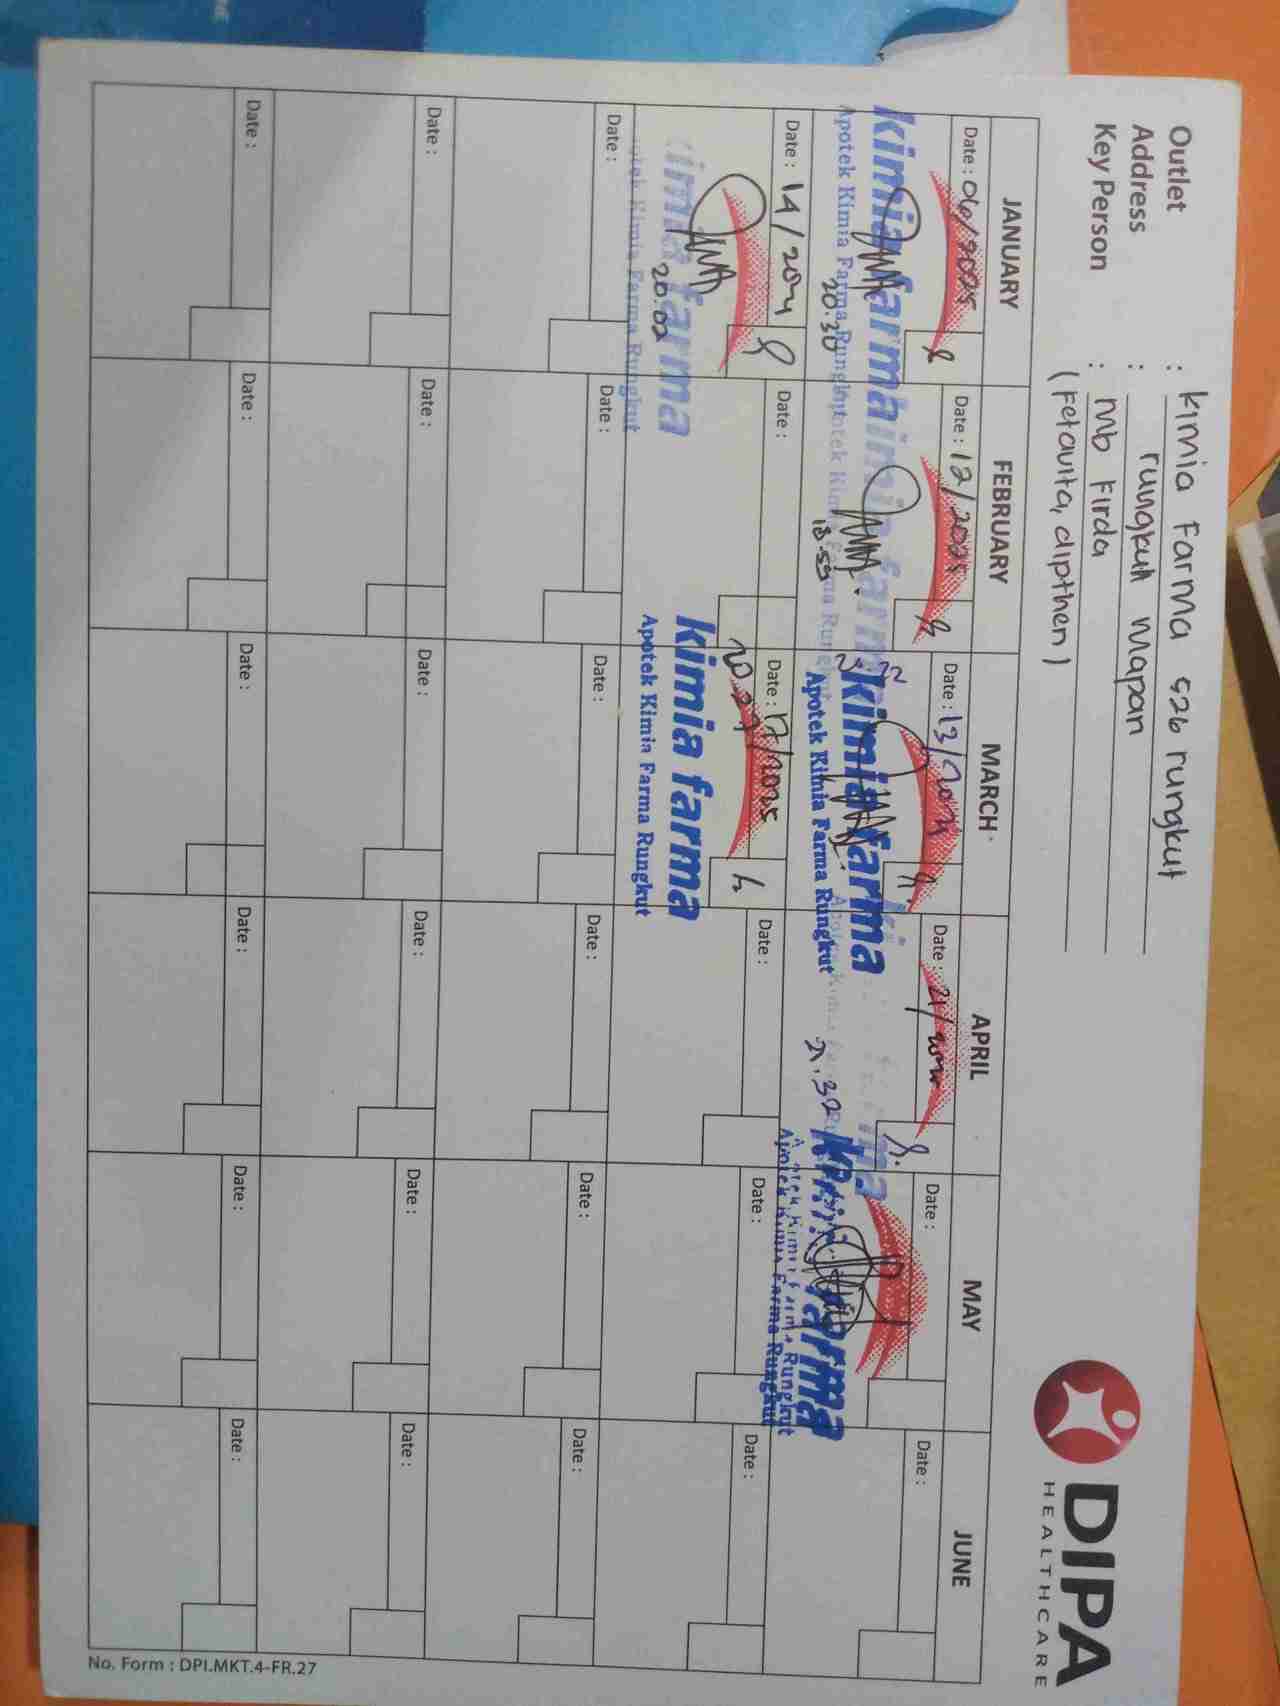 Outlet : Kimia Farma 526 rungkut
Address : rungkut Mapan
Key Person : Mb Firda
(Fetavita, dipthen)
DIPA
HEALTHCARE
JANUARY FEBRUARY MARCH APRIL MAY JUNE
Date : 06/2025 Date : 12/2025 Date : 13/2025 Date : 21/2025 Date : Date :
kimia farma
Apotek Kimia Farma Rungkut
20.30 18.59 21.32
kimia farma
Apotek Kimia Farma Rungkut
Date : 14/2025 Date : Date : 17/2025 Date : Date : Date :
20.02 20.27
kimia farma
Apotek Kimia Farma Rungkut
kimia farma
Apotek Kimia Farma Rungkut
Date : Date : Date : Date : Date : Date :
Date : Date : Date : Date : Date : Date :
Date : Date : Date : Date : Date : Date :
No. Form : DPI.MKT.4-FR.27